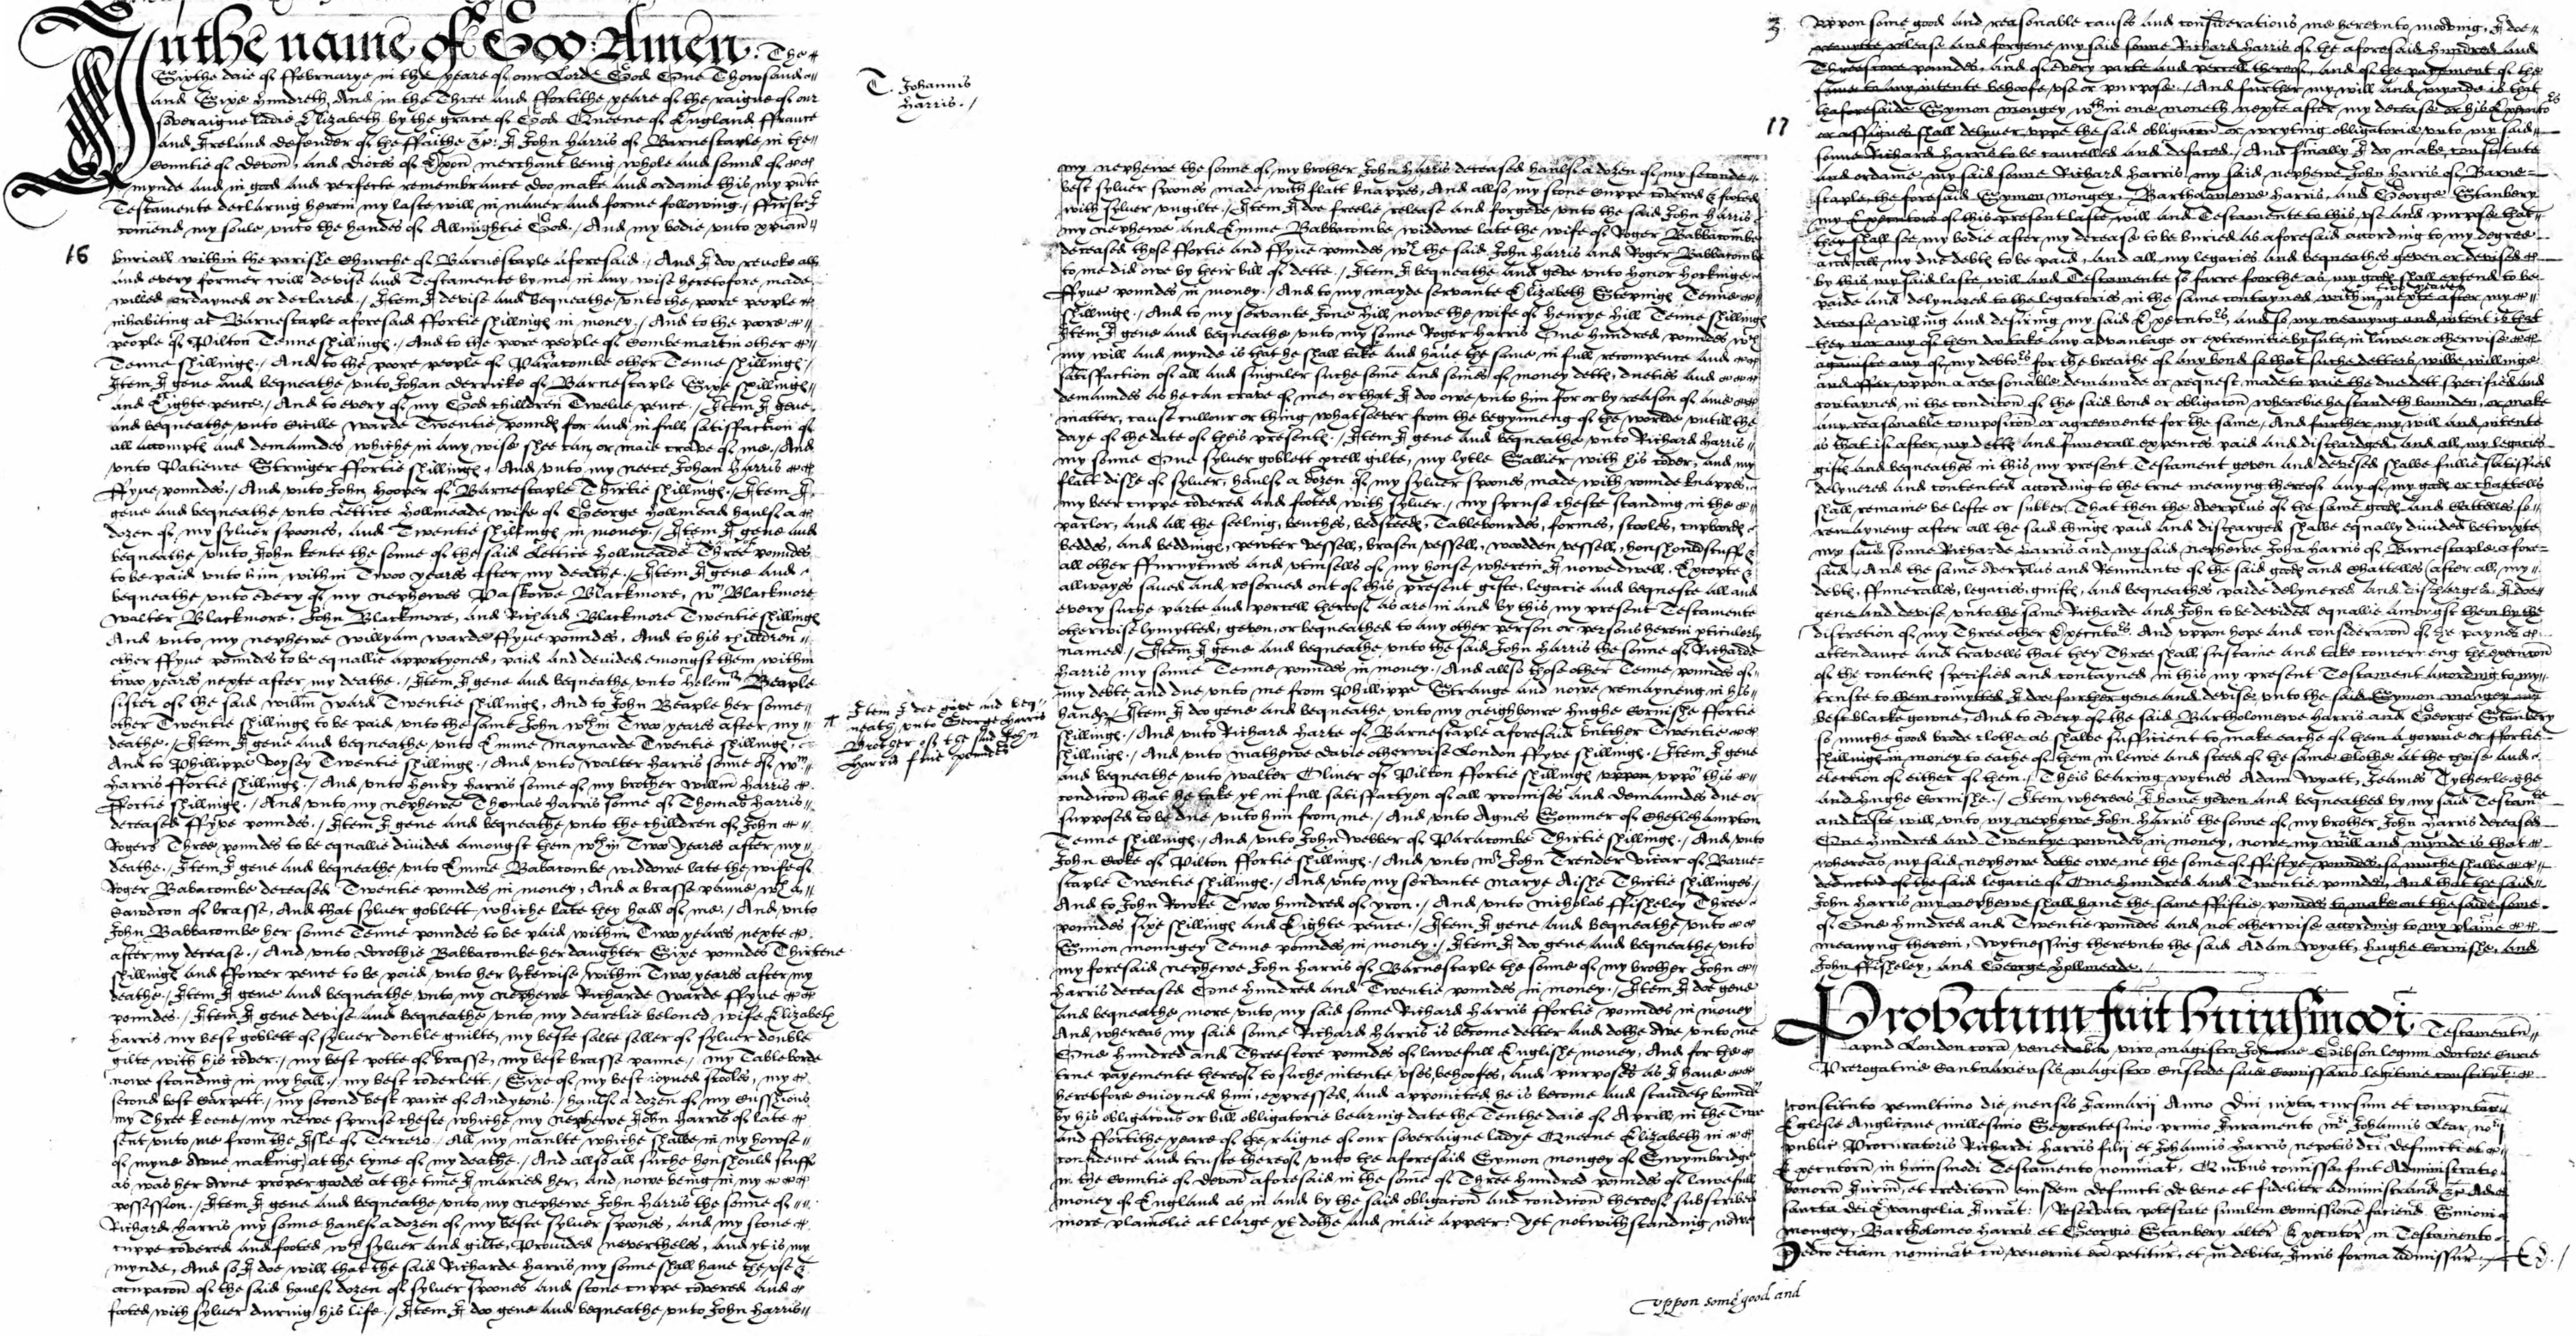 In the name of God Amen. The
Sixthe daie of ffebruarye in the yeare of our Lorde God One Thowsand
and Sixe hundreth, And in the Three and ffortithe yeare of the raigne of our
soveraigne ladie Elizabeth by the grace of God Queene of England ffraunce
and Ireland defender of the ffaithe &c: I John Harris of Barnestaple in the
Countie of Devon, and dioces of Exon merchant being whole and sound of
mynde and in good and perfecte remembrance doo make and ordaine this my pnte
Testamente declaring herein my laste will in maner and forme following./ ffirste I
comend my soule unto the handes of Allmightie God./ And my bodie unto xpian
T. Johannis
Harris./
16
buriall within the parishe Churche of Barnestaple aforesaid./ And I doo revoke all
and every former will devise and Testamente by me in any wise heretofore made
willed ordayned or declared./ Item I devise and bequeathe unto the poore people
inhabiting at Barnestaple aforesaid ffortie shillings in money./ And to the poore
people of Pilton Tenne shillings./ And to the poore people of Combemartin other
Tenne shillings./ And to the poore people of Paracombe other Tenne shillings./
Item I geve and bequeathe unto Johan Derricke of Barnestaple Sixe shillings
and Eighte pence./ And to every of my God children Twelve pence./ Item I geve
and bequeathe unto Cicille Warde Twentie pounds for and in full satisfaction of
all accompts and demaundes whiche in any wise shee can or maie crave of me./ And
unto Patience Stringer ffortie shillings. And unto my neece Johan Harris
ffyve poundes./ And unto John Hooper of Barnestaple Thirtie shillings./ Item I
geve and bequeathe unto Lettice Hollmeade wife of George Hollmead haulfe a
dozen of my sylver spoones, and Twentie shillings in money./ Item I geve and
bequeathe unto John Kente the sonne of the said Lettice Hollmeade Three poundes
to be paid unto him within Twoo yeares after my deathe./ Item I geve and
bequeathe unto every of my nephewes Paskowe Blackmore, Wm Blackmore
Walter Blackmore, John Blackmore, and Richard Blackmore Twentie shillings
And unto my nephewe Willyam Warde ffyve poundes, And to his children
other ffyve poundes to be equallie apportyoned, paid and devided emongst them within
two yeares nexte after my deathe./ Item I geve and bequeathe unto Beaple
sister of the said Willm Ward Twentie shillings, And to John Beaple her sonne
other Twentie shillings to be paid unto the same John wthin Twoo yeares after my
deathe./ Item I geve and bequeathe unto Emme Maynarde Twentie shillings,
And to Phillippe Voysey Twentie shillings./ And unto Walter Harris sonne of Wm
Harris ffortie shillings./ And unto Henry Harris sonne of my brother Willm Harris
ffortie shillings./ And unto my nephewe Thomas Harris sonne of Thomas Harris
deceased ffyve poundes./ Item I geve and bequeathe unto the children of John
Rogers Three poundes to be equallie divided amongst them wthin Twoo yeares after my
deathe./ Item I geve and bequeathe unto Emme Babacombe widdowe late the wife of
Roger Babacombe deceased Twentie poundes in money, And a brasse panne wth a
Cawdron of brasse, And that sylver goblett whiche late they hadd of me./ And unto
John Babbacombe her sonne Tenne poundes to be paid within Twoo yeares nexte
after my decease./ And unto Dorothie Babbacombe her daughter Sixe poundes Thirtene
shillings and ffower pence to be paid unto her lykewise within Twoo yeares after my
deathe./ Item I geve and bequeathe unto my nephewe Richarde Warde ffyve
poundes./ Item I geve devise and bequeathe unto my dearelie beloved wife Elizabeth
Harris my best goblett of sylver double guilte, my beste salte seller of sylver double
gilte with his cover./ my best potte of brasse, my best brasse panne./ my Tableborde
nowe standing in my hall./ my best coverlett./ Sixe of my best ioyned stooles, my
second best Carpett./ my second best paire of Andyrons./ haulfe a dozen of my Cusshions
my Three keene, my newe spruse cheste whiche my nephewe John Harris of late
sent unto me from the Isle of Tercero./ All my maulte whiche shalbe in my howse
of myne owne making at the tyme of my deathe./ And allso all suche houshould stuffe
as was her owne proper goodes at the time I maried her, and nowe being in my
possession./ Item I geve and bequeathe unto my nephewe John Harris the sonne of
Richard Harris my sonne haulfe a dozen of my beste sylver spoones, and my stone
cuppe covered and footed wth sylver and gilte, Provided neverthelese, and yt is my
mynde, And so I doe will that the said Richarde Harris my sonne shall have the use &
occupacon of the said haulfe dozen of sylver spoones and stone cuppe covered and
footed with sylver during his life./ Item I doo geve and bequeathe unto John Harris
Item I doe give and beq-
neath unto George Harris
Brother of the said John
Harris five pounds
my nephewe the sonne of my brother John Harris deceased haulfe a dozen of my seconde
best sylver spoones made with flatt knappes, And allso my stone cuppe covered & footed
with sylver ungilte./ Item I doe freelie release and forgeve unto the said John Harris
my nephewe and Emme Babbacombe widdowe late the wife of Roger Babbacombe
deceased those ffortie and ffyve poundes wch the said John Harris and Roger Babbacombe
to me did owe by their bill of dette./ Item I bequeathe and geve unto Honor
ffyve poundes in money./ And to my mayde servante Elizabeth Tenne
shillings./ And to my servante Jone Hill nowe the wife of Henrye Hill Tenne shillings
Item I geve and bequeathe unto my sonne Roger Harris One hundred poundes wch
my will and mynde is that he shall take and have the same in full recompence and
satisfaction of all and singuler suche some and somes of money detts, dueties and
demaundes as he can crave of me, or that I doo owe unto him for or by reason of anie
matter, cause cullour or thing whatsoever from the begynneng of the worlde untill the
daye of the date of theis presents./ Item I geve and bequeathe unto Richard Harris
my sonne One sylver goblett gilte, my lytle Sallter with his cover, and my
flatt dishe of sylver, haulfe a dozen of my sylver spoones made with rounde knappes,
my beer cuppe covered and footed with sylver./ my spruse cheste standing in the
parlor, and all the seeling, benches, bedsteeds, Tablebourdes, formes, stooles, cupbords
beddes, and beddings, pewter vessell, brasen vessell, woodden vessell, houshould stuffe &
all other ffurnytures and utinsells of my house wherein I nowe dwell. Excepte &
allwayes saved and reserved out of this present gifte, legacie and bequeste all and
every suche parte and percell thereof as are in and by this my present Testamente
otherwise lymytted, geven, or bequeathed to any other person or persons herein pticulerly
named./ Item I geve and bequeathe unto the said John Harris the sonne of Richarde
Harris my sonne Tenne poundes in money./ And allso those other Tenne poundes of
my debte and due unto me from Phillippe Strange and nowe remayneng in his
hands./ Item I doo geve and bequeathe unto my neighboure Hughe Cornishe ffortie
shillings./ And unto Richard Harte of Barnestaple aforesaid butcher Twentie
shillings./ And unto Mathewe Davie otherwise London ffyve shillings./ Item I geve
and bequeathe unto Walter Oliver of Pilton ffortie shillings uppon uppon this
condicon that he take yt in full satisfactyon of all promises and demaundes due or
supposed to be due unto him from me./ And unto Agnes Sommer of
Tenne shillings./ And unto John Webber of Paracombe Thirtie shillings./ And unto
John Cooke of Pilton ffortie shillings./ And unto Mr John Trender Vicar of Barne-
staple Twentie shillings./ And unto my servante Marye Aishe Thirtie shillings./
And to John Rowke Twoo hundred of yron./ And unto Nicholas ffisheley Three
poundes sixe shillings and Eighte pence./ Item I geve and bequeathe unto
Simon Moungey Tenne poundes in money./ Item I doo geve and bequeathe unto
my foresaid nephewe John Harris of Barnestaple the sonne of my brother John
Harris deceased One hundred and Twentie poundes in money./ Item I doe geve
and bequeathe more unto my said sonne Richard Harris ffortie poundes in money
And whereas my said sonne Richard Harris is become detter and dothe owe unto me
One hundred and Threescore poundes of lawefull Englishe money, And for the
true payemente thereof to suche intente, uses, behoofes, and purposes as I have
heretofore enioyned him, expressed, and appointed he is become and standeth bounde
by his obligacons or bill obligatorie bearing date the Tenthe daie of Aprill, in the Twoo
and ffortithe yeare of the raigne of our soveraigne ladye Queene Elizabeth in
confidence and truste thereof unto the aforesaid Symon Mongey of Swymbridge
in the Countie of Devon aforesaid in the some of Three hundred poundes of lawefull
money of England as in and by the said obligacon and condicon thereof subscribed
more plainelie at large yt dothe and maie appeer: Yet notwithstanding nowe
uppon some good and
3
Uppon some good and reasonable causes and considerations me hereunto mooving, I doe
remytte release and forgeve my said sonne Richard Harris of the aforesaid hundred and
Threescore poundes, And of every parte and percell thereof, and of the payement of the
same to any intente behoofe, use or purpose./ And further my will and mynde is that
thaforesaide Symon Mongey wthin one moneth nexte after my decease or his Executors
17
or assignes shall delyver uppe the said obligacon or wryting obligatorie unto my said
sonne Richard Harris to be cancelled and defaced./ And finally I doo make, constitute
and ordaine my said sonne Richard Harris my said nephewe John Harris of Barne-
staple, the foresaid Symon Mongey, Bartholomewe Harris, and George Stanbery
my Executors of this present laste will and Testamente to this use and purpose that
they shall see my bodie after my decease to be buried as aforesaid according to my degree
and all my due debts to be paid, and all my legacies and bequeathes geven or devised
by this my said laste will and Testamente so farre foorthe as my goods shall extend to be
paide and delyvered to the legatories in the same contayned within two yeares nexte after my
decease willing and desiring my said Executors, and so my meanyng and intent is that
they nor any of them do take any advantage or extremitie by sute in lawe or otherwise
againste any of my debtors for the breache of any bond so that suche detters wilbe willinge
and offer uppon a reasonable demaunde or request made to paie the due dett specified and
contayned in the condicon of the said bond or obligacon wherebie he standeth bounden, or make
any reasonable composicon or agreemente for the same, And further my will and intente
is that if after my detts and funerall expences paid and discharged, and all my legacies
gifts and bequeathes in this my present Testament geven and devised shalbe fullie satisfied
delyvered and contented according to the true meanyng thereof any of my goods or chattells
shall remaine be lefte or That then the overplus of the same goods and Chattelles so
remayneng after all the said things paid and discharged shalbe equally divided betwixte
my said sonne Richarde Harris and my said nephewe John Harris of Barnestaple afore-
said, And the same overplus and Remnante of the said goods and Chattelles (after all my
debts, ffuneralles, legacies, guifts, and bequeathes paide delyvered and discharged) I doe
geve and devise unto the same Richarde and John to be devided equallie amongst them by the
discretion of my Three other Executors. And uppon hope and consideracon of the paynes
attendance and travells that they Three shall sustaine and take concerneng the execucon
of the contents specified and contayned in this my present Testament according to my
truste to them comytted I doe further geve and devise unto the said Symon Mongey my
best blacke gowne, And to every of the said Bartholomewe Harris and George Stanbery
so muche good brode clothe as shalbe sufficient to make eache of them a gowne or ffortie
shillings in money to eache of them in lewe and steed of the same Clothe at the choise and
election of either of them./ Theis bearing wytnes Adam Wyatt, Jeames Tytherleighe
and Hughe Cornishe./ Item whereas I have geven and bequeathed by my said Testamte
and laste will unto my nephewe John Harris the sonne of my brother John Harris deceased
One hundred and Twentye powndes in money, nowe my will and mynde is that
whereas my said nephewe dothe owe me the some of ffiftye poundes, so muche shalbe
deducted of the said legacie of One hundred and Twentie poundes, And that the said
John Harris my nephewe shall have the same ffiftie poundes to make out the saide some
of One hundred and Twentie poundes and not otherwise according to my plaine
meanyng therein, wytnessing thereunto the said Adam Wyatt, Hughe Cornishe, and
John ffisheley, and George Hollmeade./
Probatum fuit huiusmodi Testamentu
apud London cora venerabili viro magistro Johanne Gibson legum doctore Curie
Prerogative Cantuariensis magistro Custode sive Comissario legitime constitut
constituto penultimo die mensis Januarij Anno Dni iuxta cursum et computacoem
Eglesie Anglicane millesimo Sexcentesimo primo Iuramento mri Johannis Lear no
publici Procuratoris Richardi Harris filij et Johannis Harris nepotis dci defuncti et
Executoru in huiusmodi Testamento nominat, Quibus comissa fuit Administratio
bonoru Iuriu, et creditoru eiusdem defuncti de bene et fideliter administrand &c Ad
sancta dei Evangelia Iurat: Reservata potestate similem comissione faciend Simoni
Mongey, Bartholomeo Harris et Georgio Stanbery alter Executor in Testamento
pedco etiam nominat cu venerint ea petitur, et in debita Iuris forma admissur./ Ex./